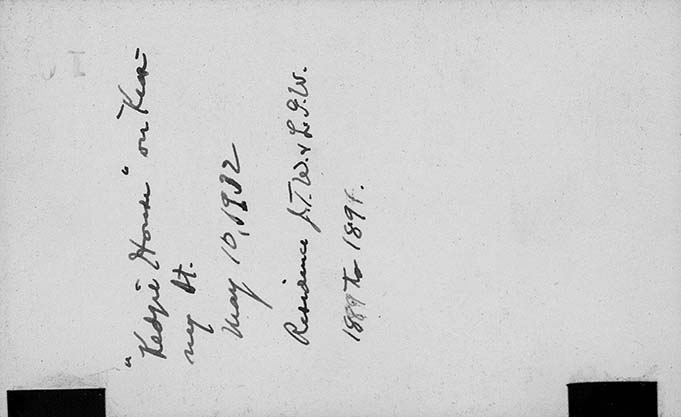 "Kedzie House" on Kear-
ney St.
May 10, 1932
Residence J.T.W. & L.G.W.
1889 to 1891.